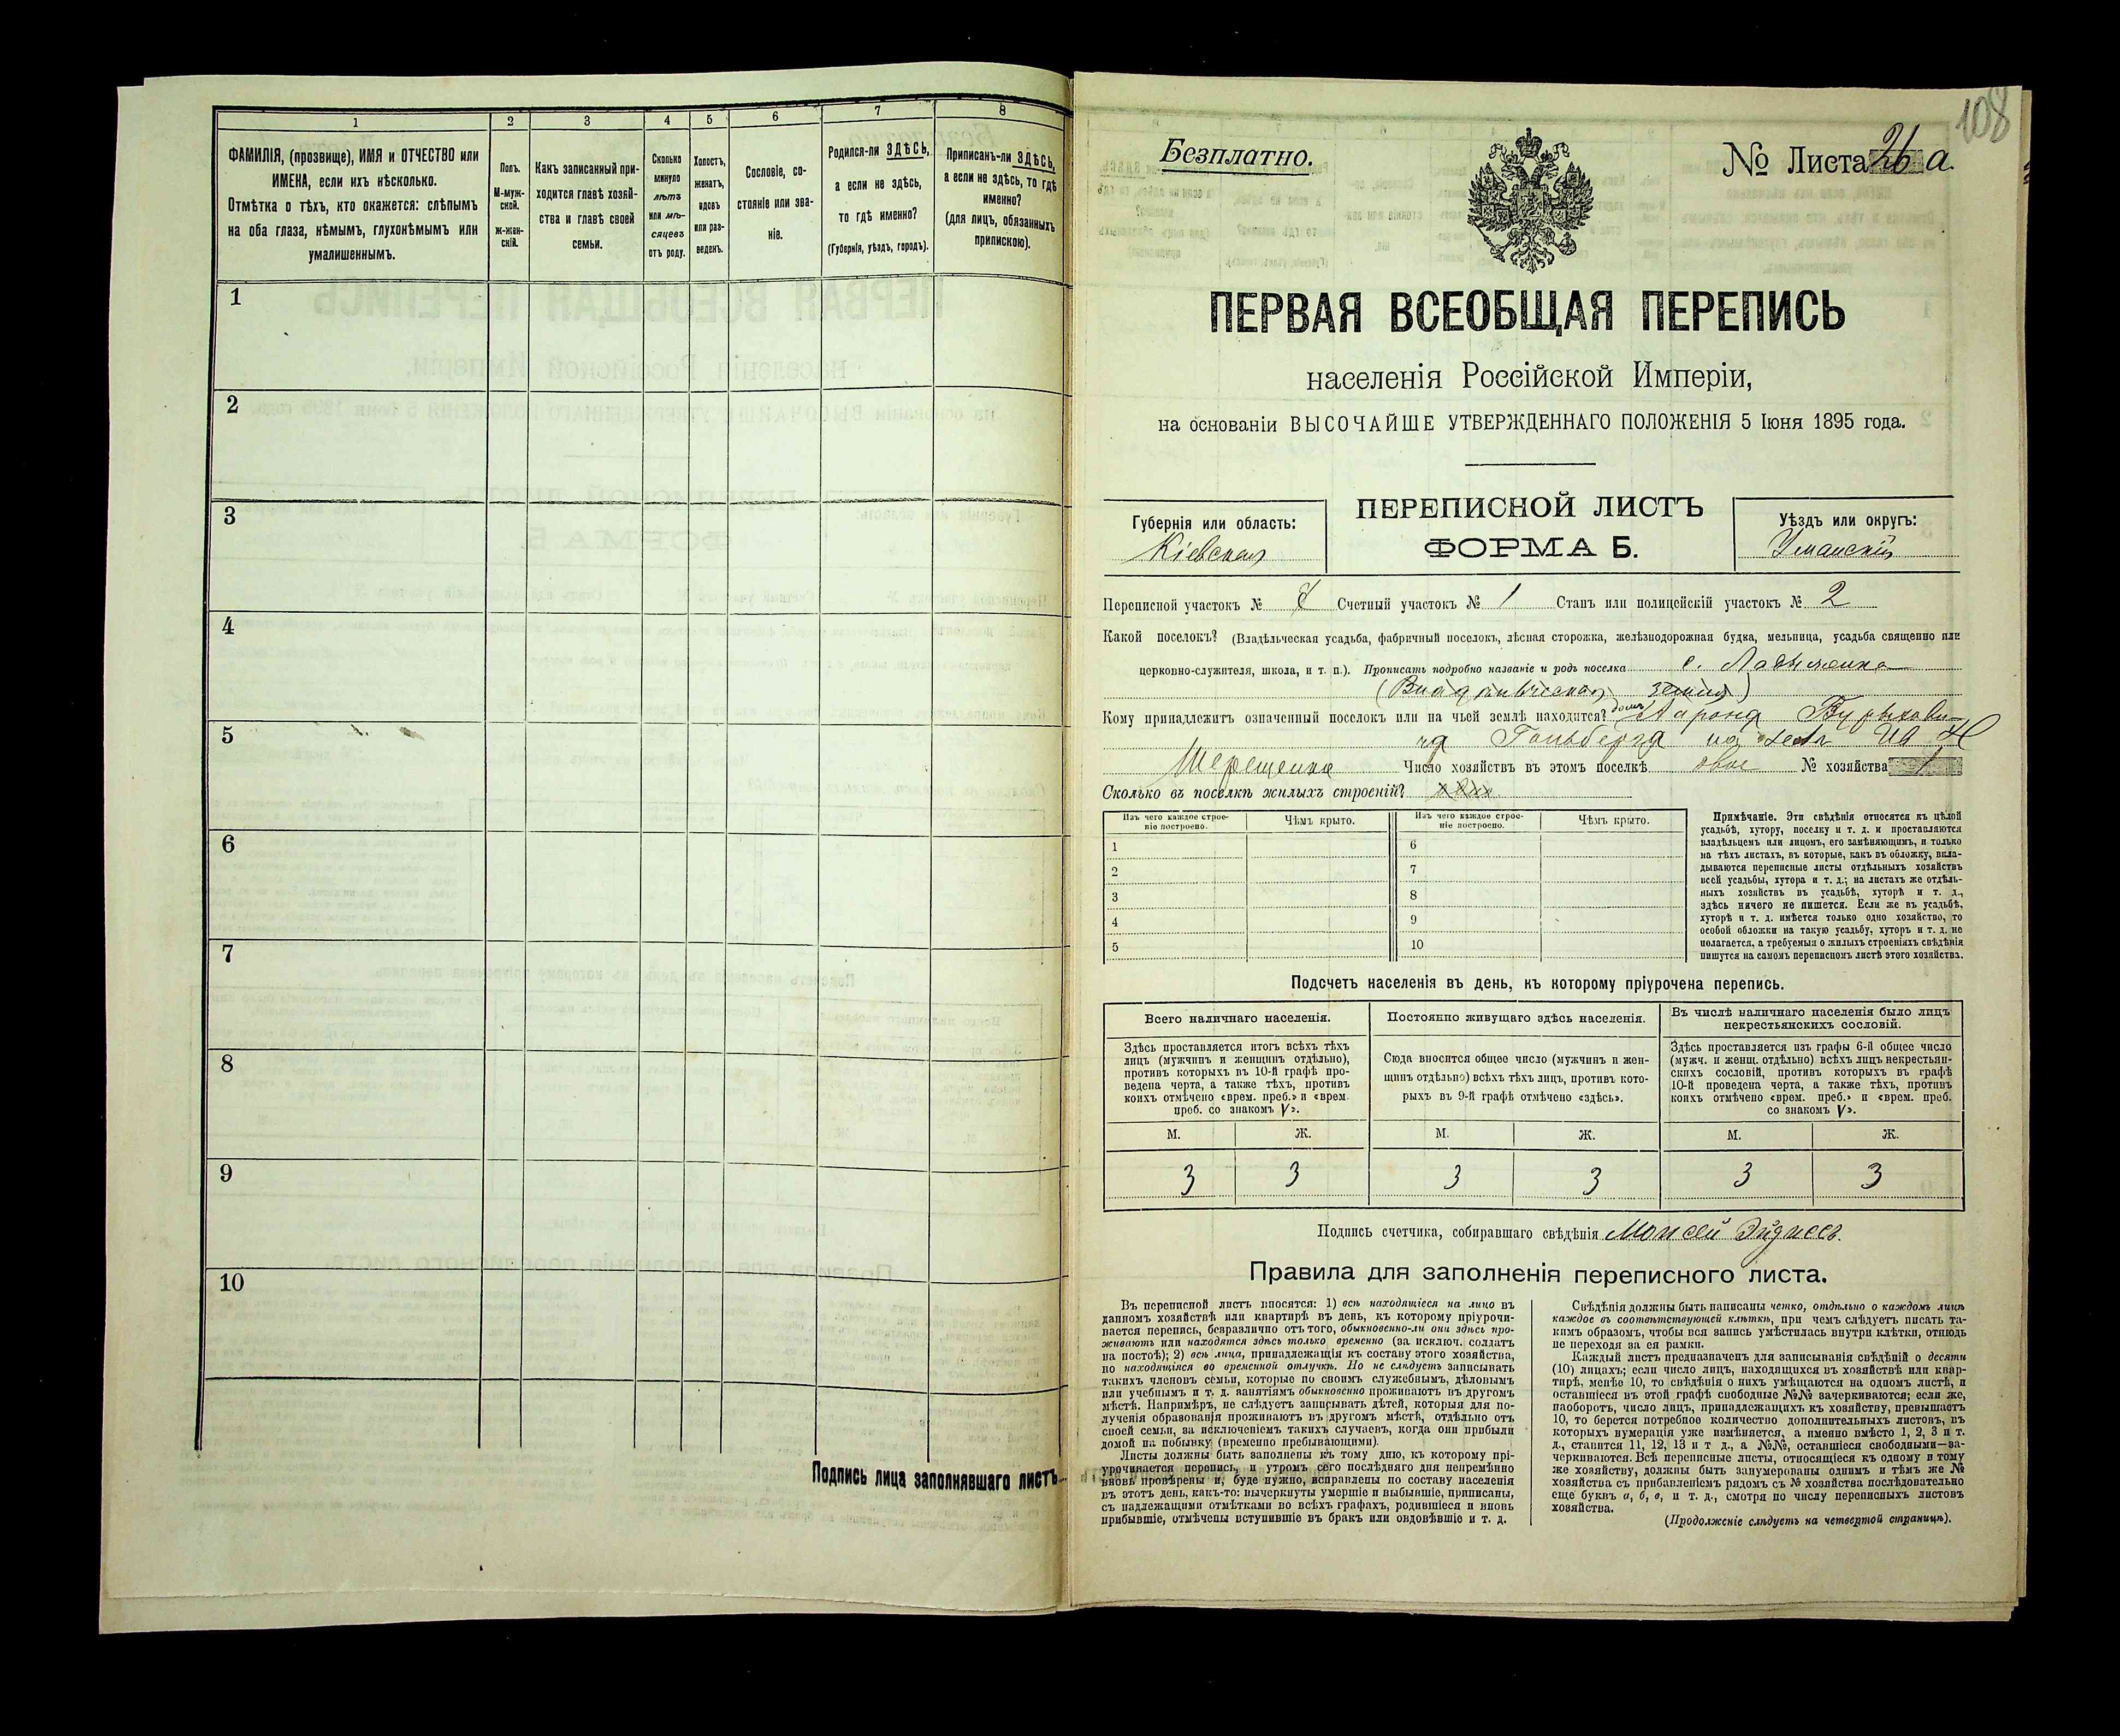 1 2 3 4 5 6 7 8
ФАМИЛІЯ, (прозвище), ИМЯ и ОТЧЕСТВО или
ИМЕНА, если ихъ нѣсколько.
Отмѣтка о тѣхъ, кто окажется: слѣпымъ
на оба глаза, нѣмымъ, глухонѣмымъ или
умалишеннымъ.
Полъ.
М-муж-
ской.
ж-жен-
скій.
Какъ записанный при-
ходится главѣ хозяй-
ства и главѣ своей
семьи.
Сколько
минуло
лѣтъ
или мѣ-
сяцевъ
отъ роду.
Холостъ,
женатъ,
вдовъ
или раз-
веденъ.
Сословіе, со-
стояніе или зва-
ніе.
Родился-ли ЗДѢСЬ,
а если не здѣсь,
то гдѣ именно?
(Губернія, уѣздъ, городъ).
Приписанъ-ли ЗДѢСЬ,
а если не здѣсь, то гдѣ
именно?
(для лицъ, обязанныхъ
припискою).
1
2
3
4
5
6
7
8
9
10
Подпись лица заполнявшаго листъ
108
Безплатно.
№ Листа 26 а.
ПЕРВАЯ ВСЕОБЩАЯ ПЕРЕПИСЬ
населенія Россійской Имперіи,
на основаніи ВЫСОЧАЙШЕ УТВЕРЖДЕННАГО ПОЛОЖЕНІЯ 5 Іюня 1895 года.
Губернія или область:
Кіевская
ПЕРЕПИСНОЙ ЛИСТЪ
ФОРМА Б.
Уѣздъ или округъ:
Уманскій
Переписной участокъ № Счетный участокъ № 1 Станъ или полицейскій участокъ № 2
Какой поселокъ? (Владѣльческая усадьба, фабричный поселокъ, лѣсная сторожка, желѣзнодорожная будка, мельница, усадьба священно или
церковно-служителя, школа, и т. п.). Прописать подробно названіе и родъ поселка с. Ладыженка
(Владѣльческая земля)
Кому принадлежитъ означенный поселокъ или на чьей землѣ находится? домъ Аарона
Гольберга на
Терещенка Число хозяйствъ въ этомъ поселкѣ № хозяйства 1
Сколько въ поселкѣ жилыхъ строеній?
Изъ чего каждое строе-
ніе построено.
Чѣмъ крыто.
Изъ чего каждое строе-
ніе построено.
Чѣмъ крыто.
1 6
2 7
3 8
4 9
5 10
Примѣчаніе. Эти свѣдѣнія относятся къ цѣлой
усадьбѣ, хутору, поселку и т. д. и проставляются
владѣльцемъ или лицомъ, его замѣняющимъ, и только
на тѣхъ листахъ, въ которые, какъ въ обложку, вкла-
дываются переписные листы отдѣльныхъ хозяйствъ
всей усадьбы, хутора и т. д.; на листахъ же отдѣль-
ныхъ хозяйствъ въ усадьбѣ, хуторѣ и т. д.,
здѣсь ничего не пишется. Если же въ усадьбѣ,
хуторѣ и т. д. имѣется только одно хозяйство, то
особой обложки на такую усадьбу, хуторъ и т. д. не
полагается, а требуемыя о жилыхъ строеніяхъ свѣдѣнія
пишутся на самомъ переписномъ листѣ этого хозяйства.
Подсчетъ населенія въ день, къ которому пріурочена перепись.
Всего наличнаго населенія.
Здѣсь проставляется итогъ всѣхъ тѣхъ
лицъ (мужчинъ и женщинъ отдѣльно),
противъ которыхъ въ 10-й графѣ про-
ведена черта, а также тѣхъ, противъ
коихъ отмѣчено «врем. преб.» и «врем.
преб. со знакомъ V».
Постоянно живущаго здѣсь населенія.
Сюда вносится общее число (мужчинъ и жен-
щинъ отдѣльно) всѣхъ тѣхъ лицъ, противъ кото-
рыхъ въ 9-й графѣ отмѣчено «здѣсь».
Въ числѣ наличнаго населенія было лицъ
некрестьянскихъ сословій.
Здѣсь проставляется изъ графы 6-й общее число
(мужч. и женщ. отдѣльно) всѣхъ лицъ некрестьян-
скихъ сословій, противъ которыхъ въ графѣ
10-й проведена черта, а также тѣхъ, противъ
коихъ отмѣчено «врем. преб.» и «врем. преб.
со знакомъ V».
М. Ж. М. Ж. М. Ж.
3 3 3 3 3 3
Подпись счетчика, собиравшаго свѣдѣнія Моисей
Правила для заполненія переписного листа.
Въ переписной листъ вносятся: 1) всѣ находящіеся на лицо въ
данномъ хозяйствѣ или квартирѣ въ день, къ которому пріурочи-
вается перепись, безразлично отъ того, обыкновенно-ли они здѣсь про-
живаютъ или находятся здѣсь только временно (за исключ. солдатъ
на постоѣ); 2) всѣ лица, принадлежащія къ составу этого хозяйства,
но находящіяся во временной отлучкѣ. Но не слѣдуетъ записывать
такихъ членовъ семьи, которые по своимъ служебнымъ, дѣловымъ
или учебнымъ и т. д. занятіямъ обыкновенно проживаютъ въ другомъ
мѣстѣ. Напримѣръ, не слѣдуетъ записывать дѣтей, которыя для по-
лученія образованія проживаютъ въ другомъ мѣстѣ, отдѣльно отъ
своей семьи, за исключеніемъ такихъ случаевъ, когда они прибыли
домой на побывку (временно пребывающими).
Листы должны быть заполнены къ тому дню, къ которому прі-
урочивается перепись, и утромъ сего послѣдняго дня непремѣнно
вновь провѣрены и, буде нужно, исправлены по составу населенія
въ этотъ день, какъ-то: вычеркнуты умершіе и выбывшіе, приписаны,
съ надлежащими отмѣтками во всѣхъ графахъ, родившіеся и вновь
прибывшіе, отмѣчены вступившіе въ бракъ или овдовѣвшіе и т. д.
Свѣдѣнія должны быть написаны четко, отдѣльно о каждомъ лицѣ
каждое въ соотвѣтствующей клѣткѣ, при чемъ слѣдуетъ писать та-
кимъ образомъ, чтобы вся запись умѣстилась внутри клѣтки, отнюдь
не переходя за ея рамки.
Каждый листъ предназначенъ для записыванія свѣдѣній о десяти
(10) лицахъ; если число лицъ, находящихся въ хозяйствѣ или квар-
тирѣ, менѣе 10, то свѣдѣнія о нихъ умѣщаются на одномъ листѣ, и
оставшіеся въ этой графѣ свободные №№ зачеркиваются; если же,
наоборотъ, число лицъ, принадлежащихъ къ хозяйству, превышаетъ
10, то берется потребное количество дополнительныхъ листовъ, въ
которыхъ нумерація уже измѣняется, а именно вмѣсто 1, 2, 3 и т.
д., ставится 11, 12, 13 и т д., а №№, оставшіеся свободными—за-
черкиваются. Всѣ переписные листы, относящіеся къ одному и тому
же хозяйству, должны быть занумерованы однимъ и тѣмъ же №
хозяйства съ прибавленіемъ рядомъ съ № хозяйства послѣдовательно
еще буквъ а, б, в, и т. д., смотря по числу переписныхъ листовъ
хозяйства.
(Продолженіе слѣдуетъ на четвертой страницѣ).